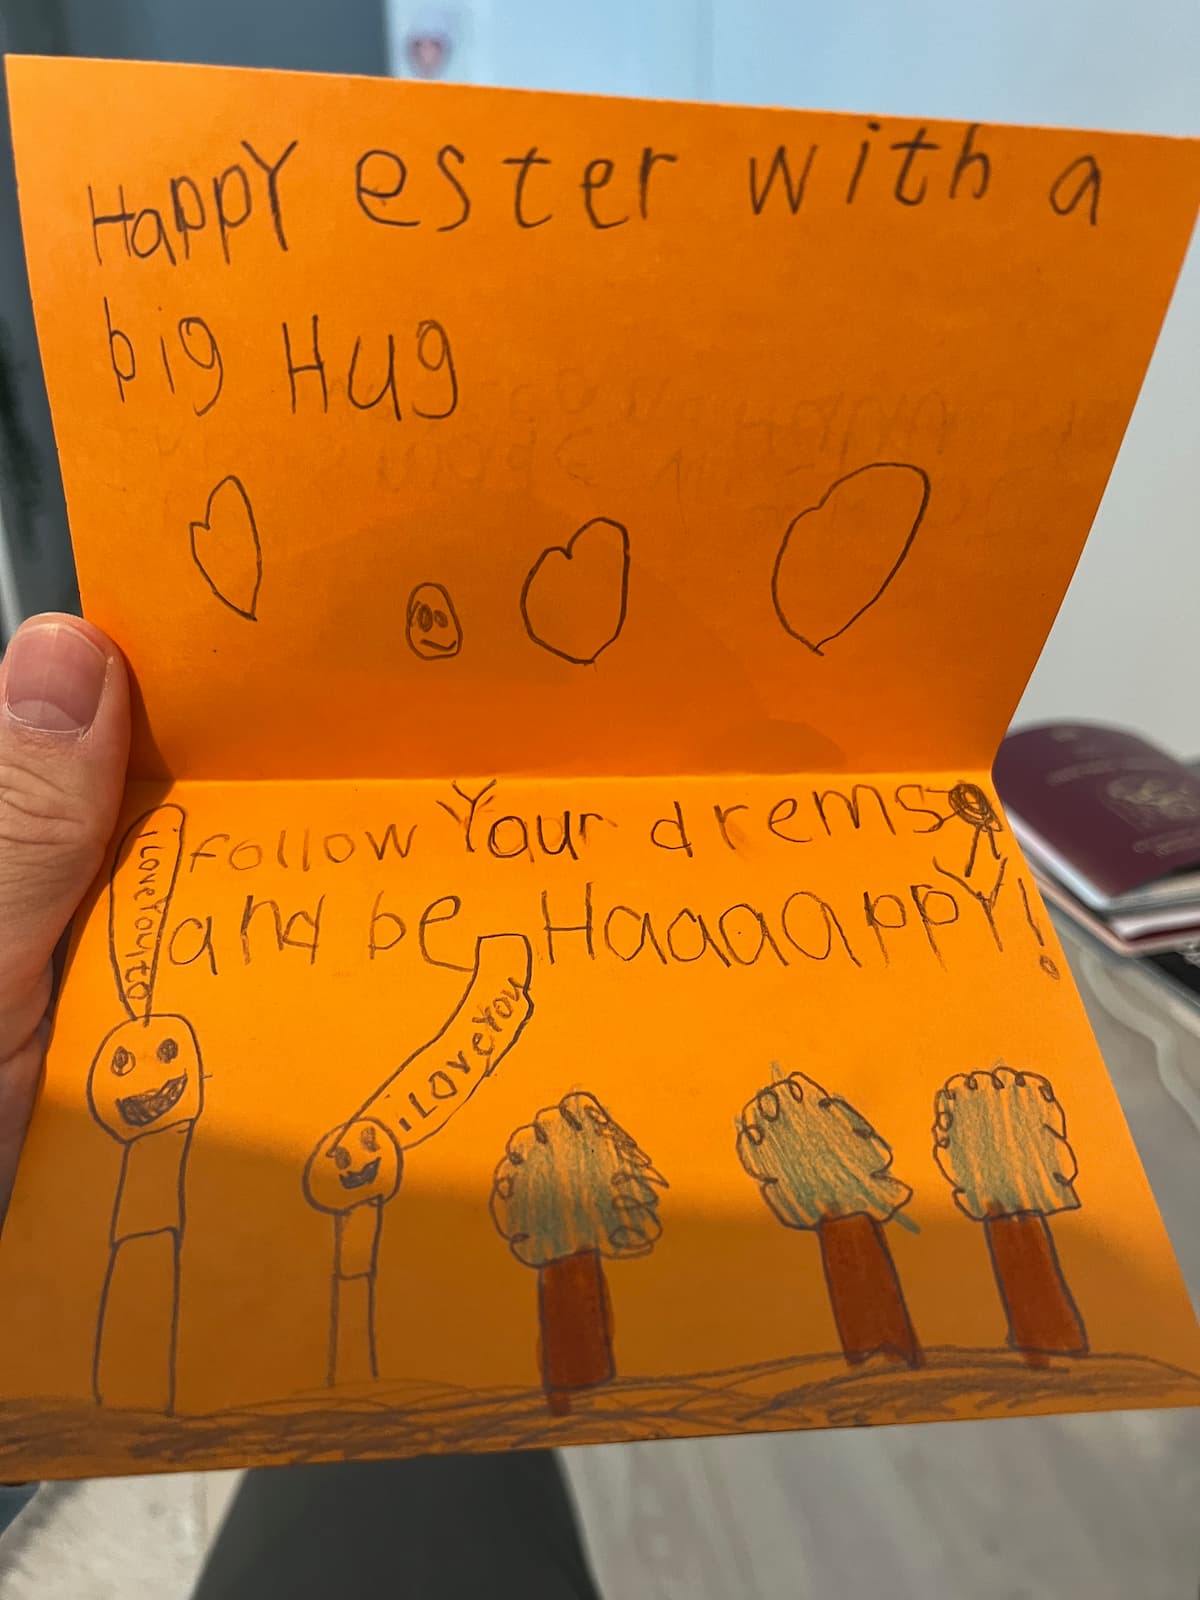 Happy ester with a
big Hug
follow Your drems
and be Haaaappy!
i love You to
i Love You